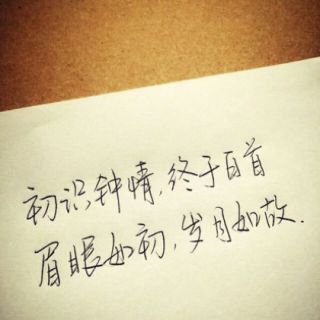 初识钟情,终于百首
眉眼如初,岁月如故.